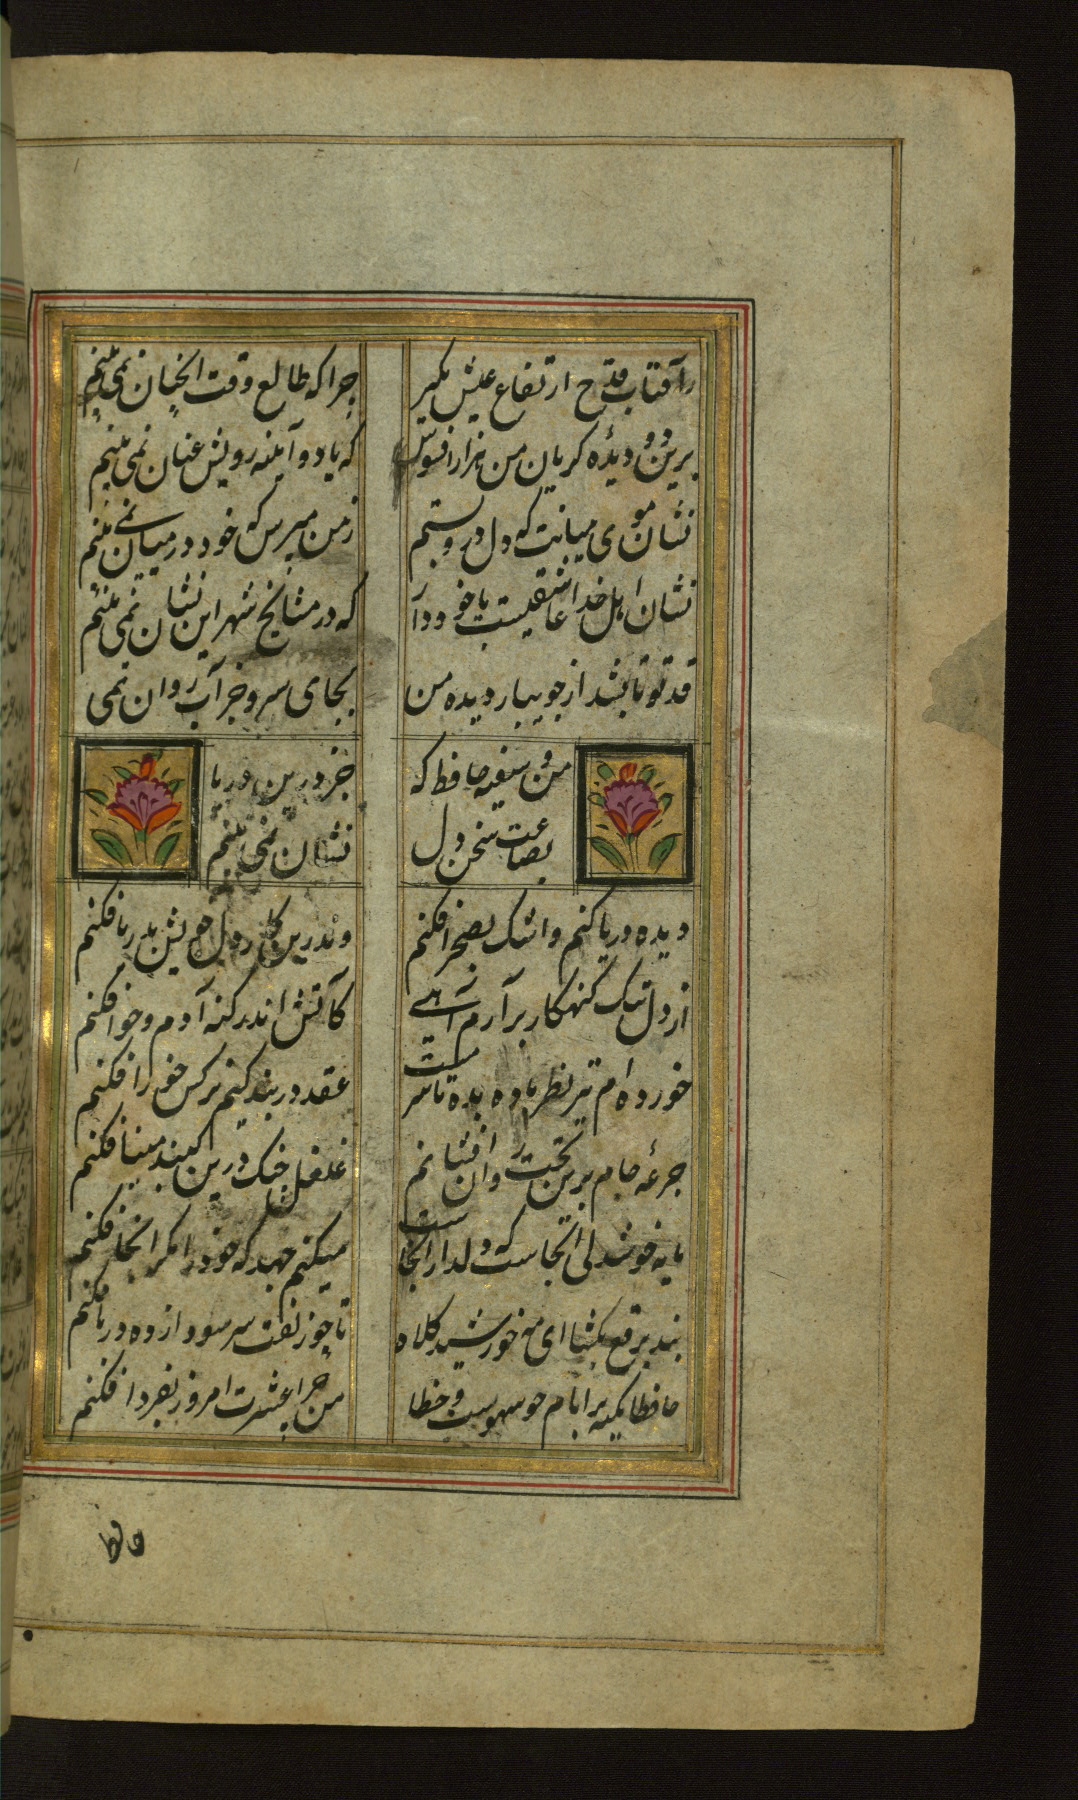 رآفتاب قدح ارتفاع عیش بگیر
چرا که طالع وقت آنچنان نمی بینم
برین دو دیدهٔ گریان من هزار افسوس
که با دو آینه رویش عیان نمی بینم
نشان موی میانت که دل درو بستم
زمن مپرس که خود در میان نمی بینم
نشان اهل خدا عاشقیست با خود دار
که در مشائخ شهر این نشان نمی بینم
قد تو تا بشد از جویبار دیده من
بجای سرو جز آب روان نمی
من و سفینه حافظ که
جز درین دریا
بضاعت سخن دل
نشان نمی بینم
دیده دریا کنم و اشک بصحرا فکنم
وندرین کار دل خویش بدریا فکنم
از دل تنک گنهکار برآرم آهی
کآتش اندر گنه آدم و حوا فکنم
خورده ام تیر نظر باده بده تا سر مست
عقد در بند کمر ترکش جوزا فکنم
جرعهٔ جام برین تخت روان افشانم
غلغل چنک درین گنبد مینا فکنم
مایه خوشدلی آنجاست که دلدار آنجاست
میکنم جهد که خود را مگر آنجا فکنم
بند برقع بگشا ای مه خورشید کلاه
تا چو زلفت سر سودا زده در پا فکنم
حافظا تکیه بر ایام چو سهوست و خطا
من چرا عشرت امروز بفردا فکنم